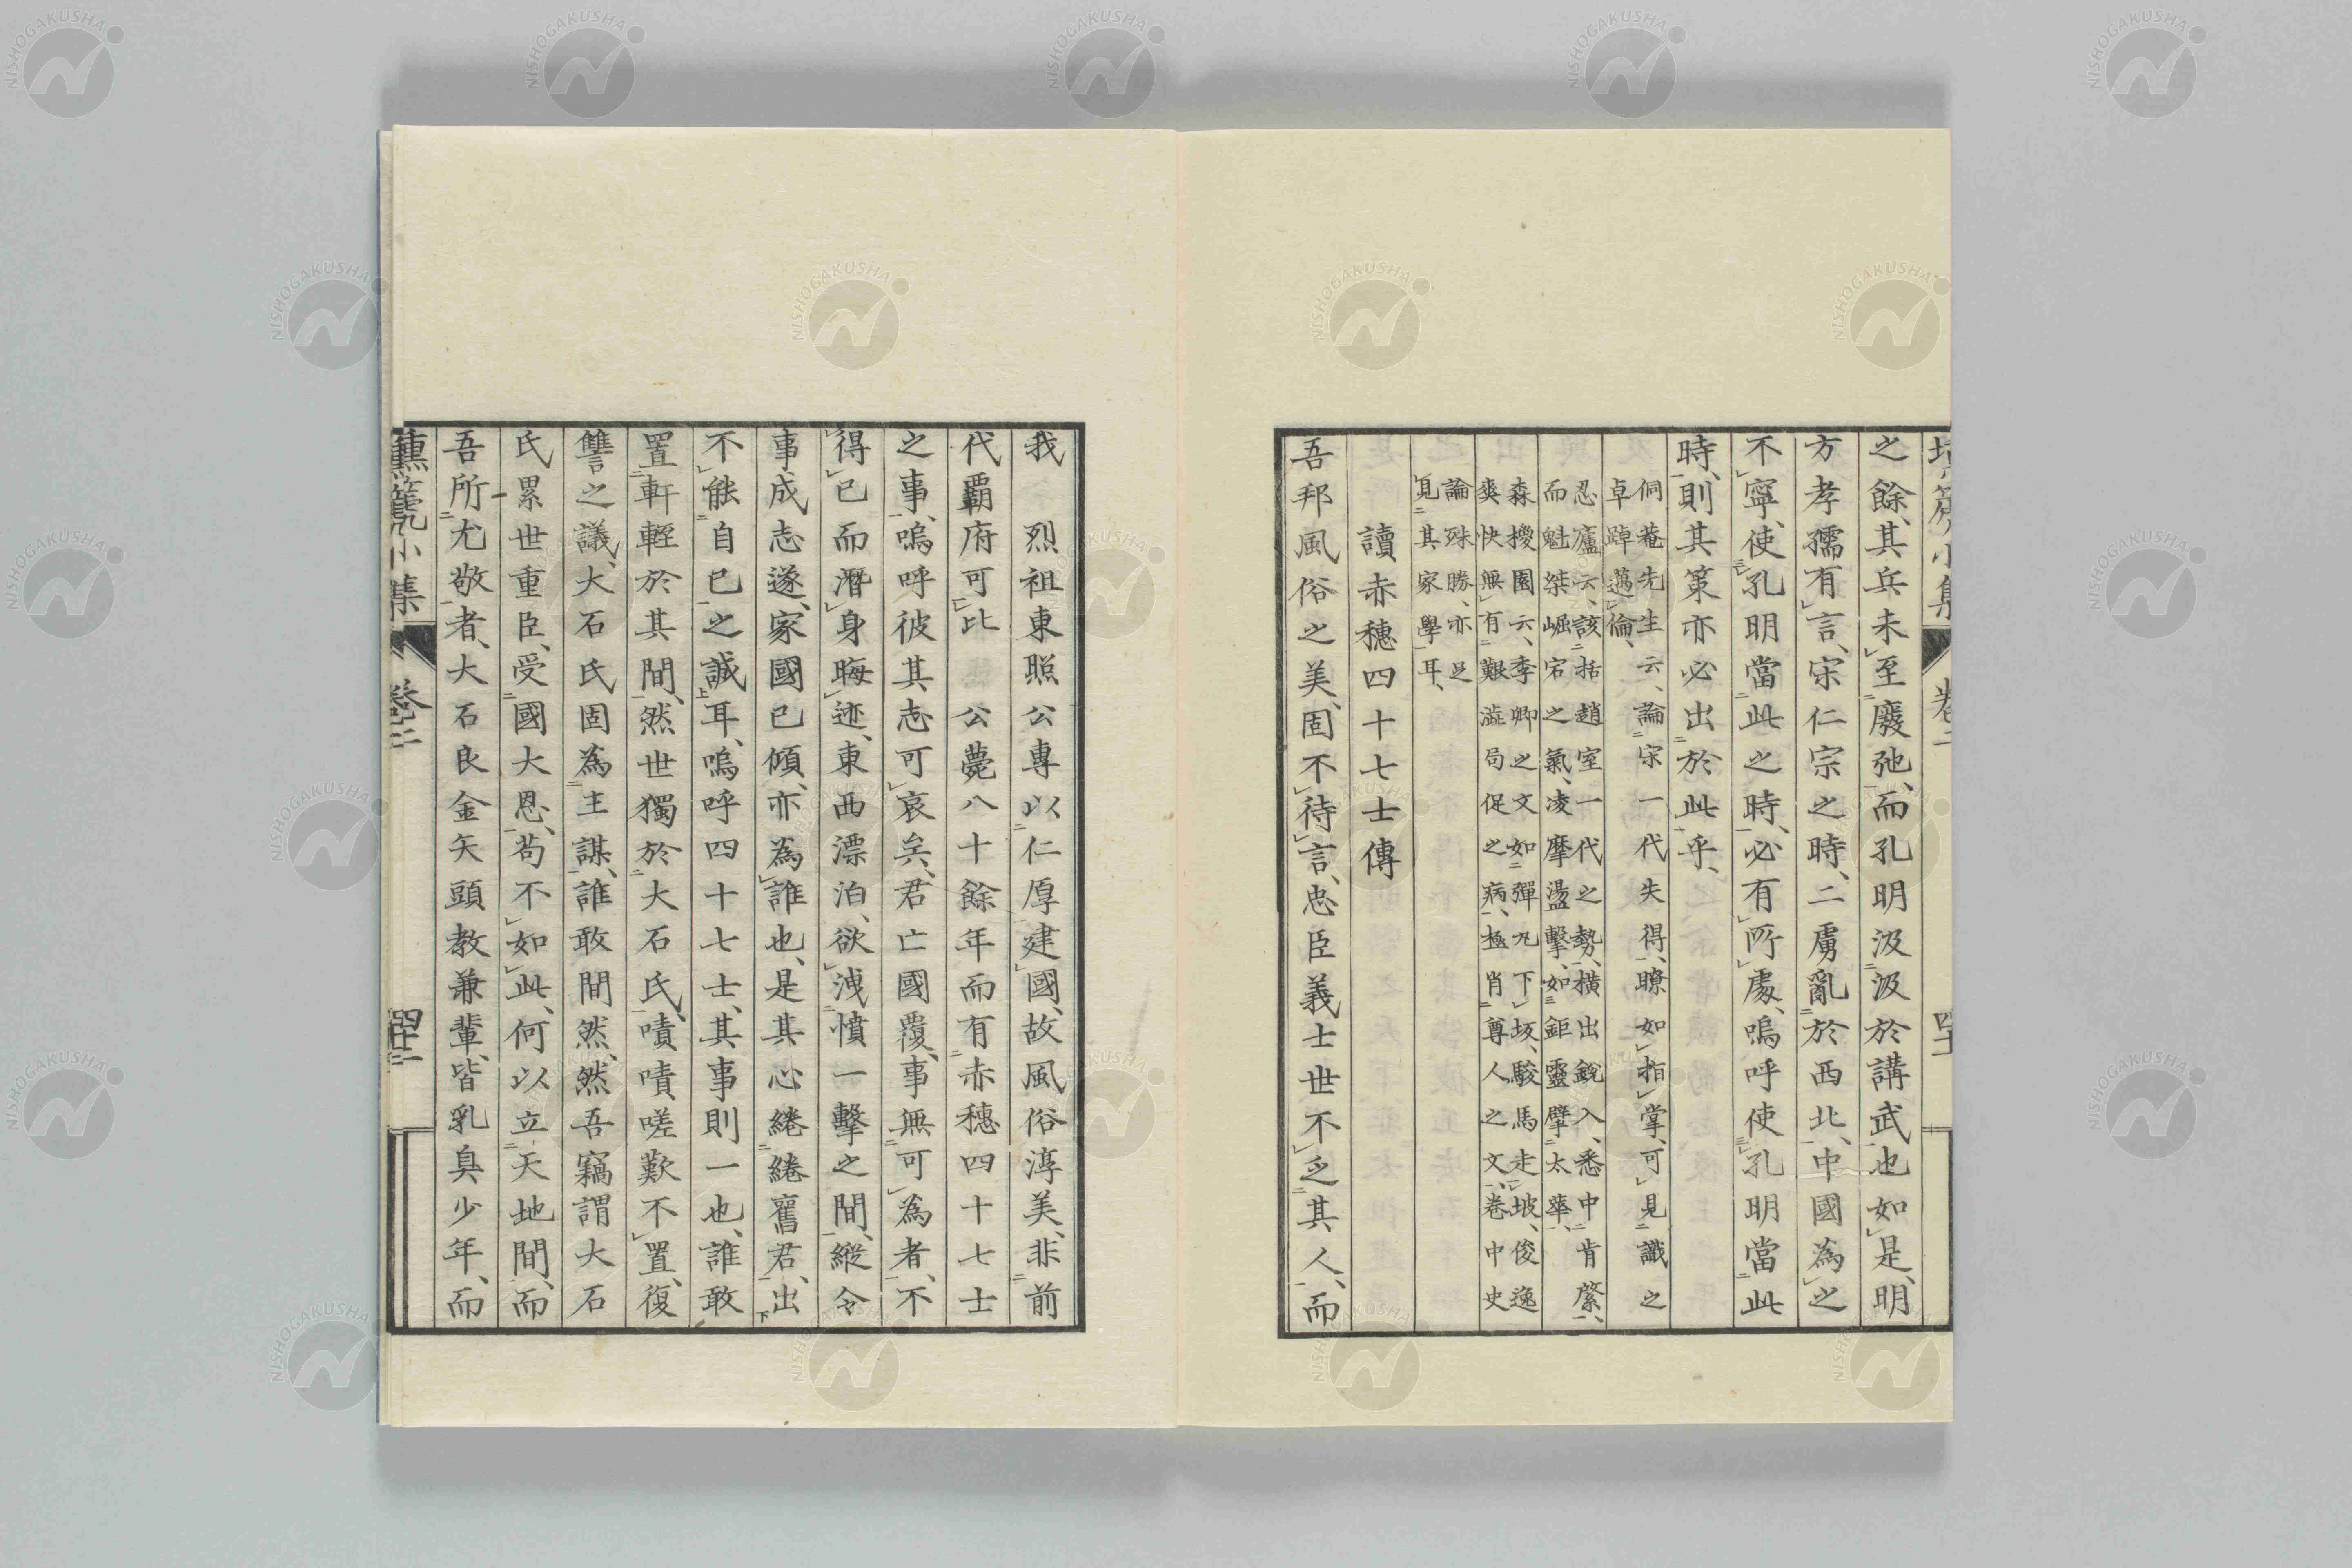 之餘、其兵未至廢弛、而孔明汲汲於講武也如是、明
方孝孺有言、宋仁宗之時、二虜亂於西北、中國為之
不寧、使孔明當此之時、必有所處、嗚呼使孔明當此
時、則其策亦必出於此乎、
侗菴先生云、論宋一代失得、瞭如指掌、可見識之
卓踔邁倫、
忍廬云、該括趙室一代之勢、橫出銳入、悉中肯綮、
而魁桀崛宕之氣、凌摩盪擊、如鉅靈擘太華、
森擾園云、李卿之文如彈丸下坂、駿馬走坡、俊逸
爽快無有艱澁局促之病、極肖尊人之文、卷中史
論殊勝、亦足
見其家學耳、
讀赤穗四十七士傳
吾邦風俗之美、固不待言、忠臣義士世不乏其人、而
我 烈祖東照公專以仁厚建國、故風俗淳美、非前
代霸府可比 公薨八十餘年而有赤穗四十七士
之事、嗚呼彼其志可哀矣、君亡國覆、事無可為者、不
得已而潛身晦迹、東西漂泊、欲洩憤一擊之間、縱令
事成志遂、家國已傾、亦為誰也、是其心綣綣舊君、出
不能自已之誠耳、嗚呼四十七士、其事則一也、誰敢
置軒輊於其間、然世獨於大石氏、嘖嘖嗟歎不置、復
讐之議、大石氏固為主謀、誰敢間然、然吾竊謂大石
氏累世重臣、受國大恩、苟不如此、何以立天地間、而
吾所尤敬者、大石良金矢頭教兼輩、皆乳臭少年、而
篪小集
卷二
四十二